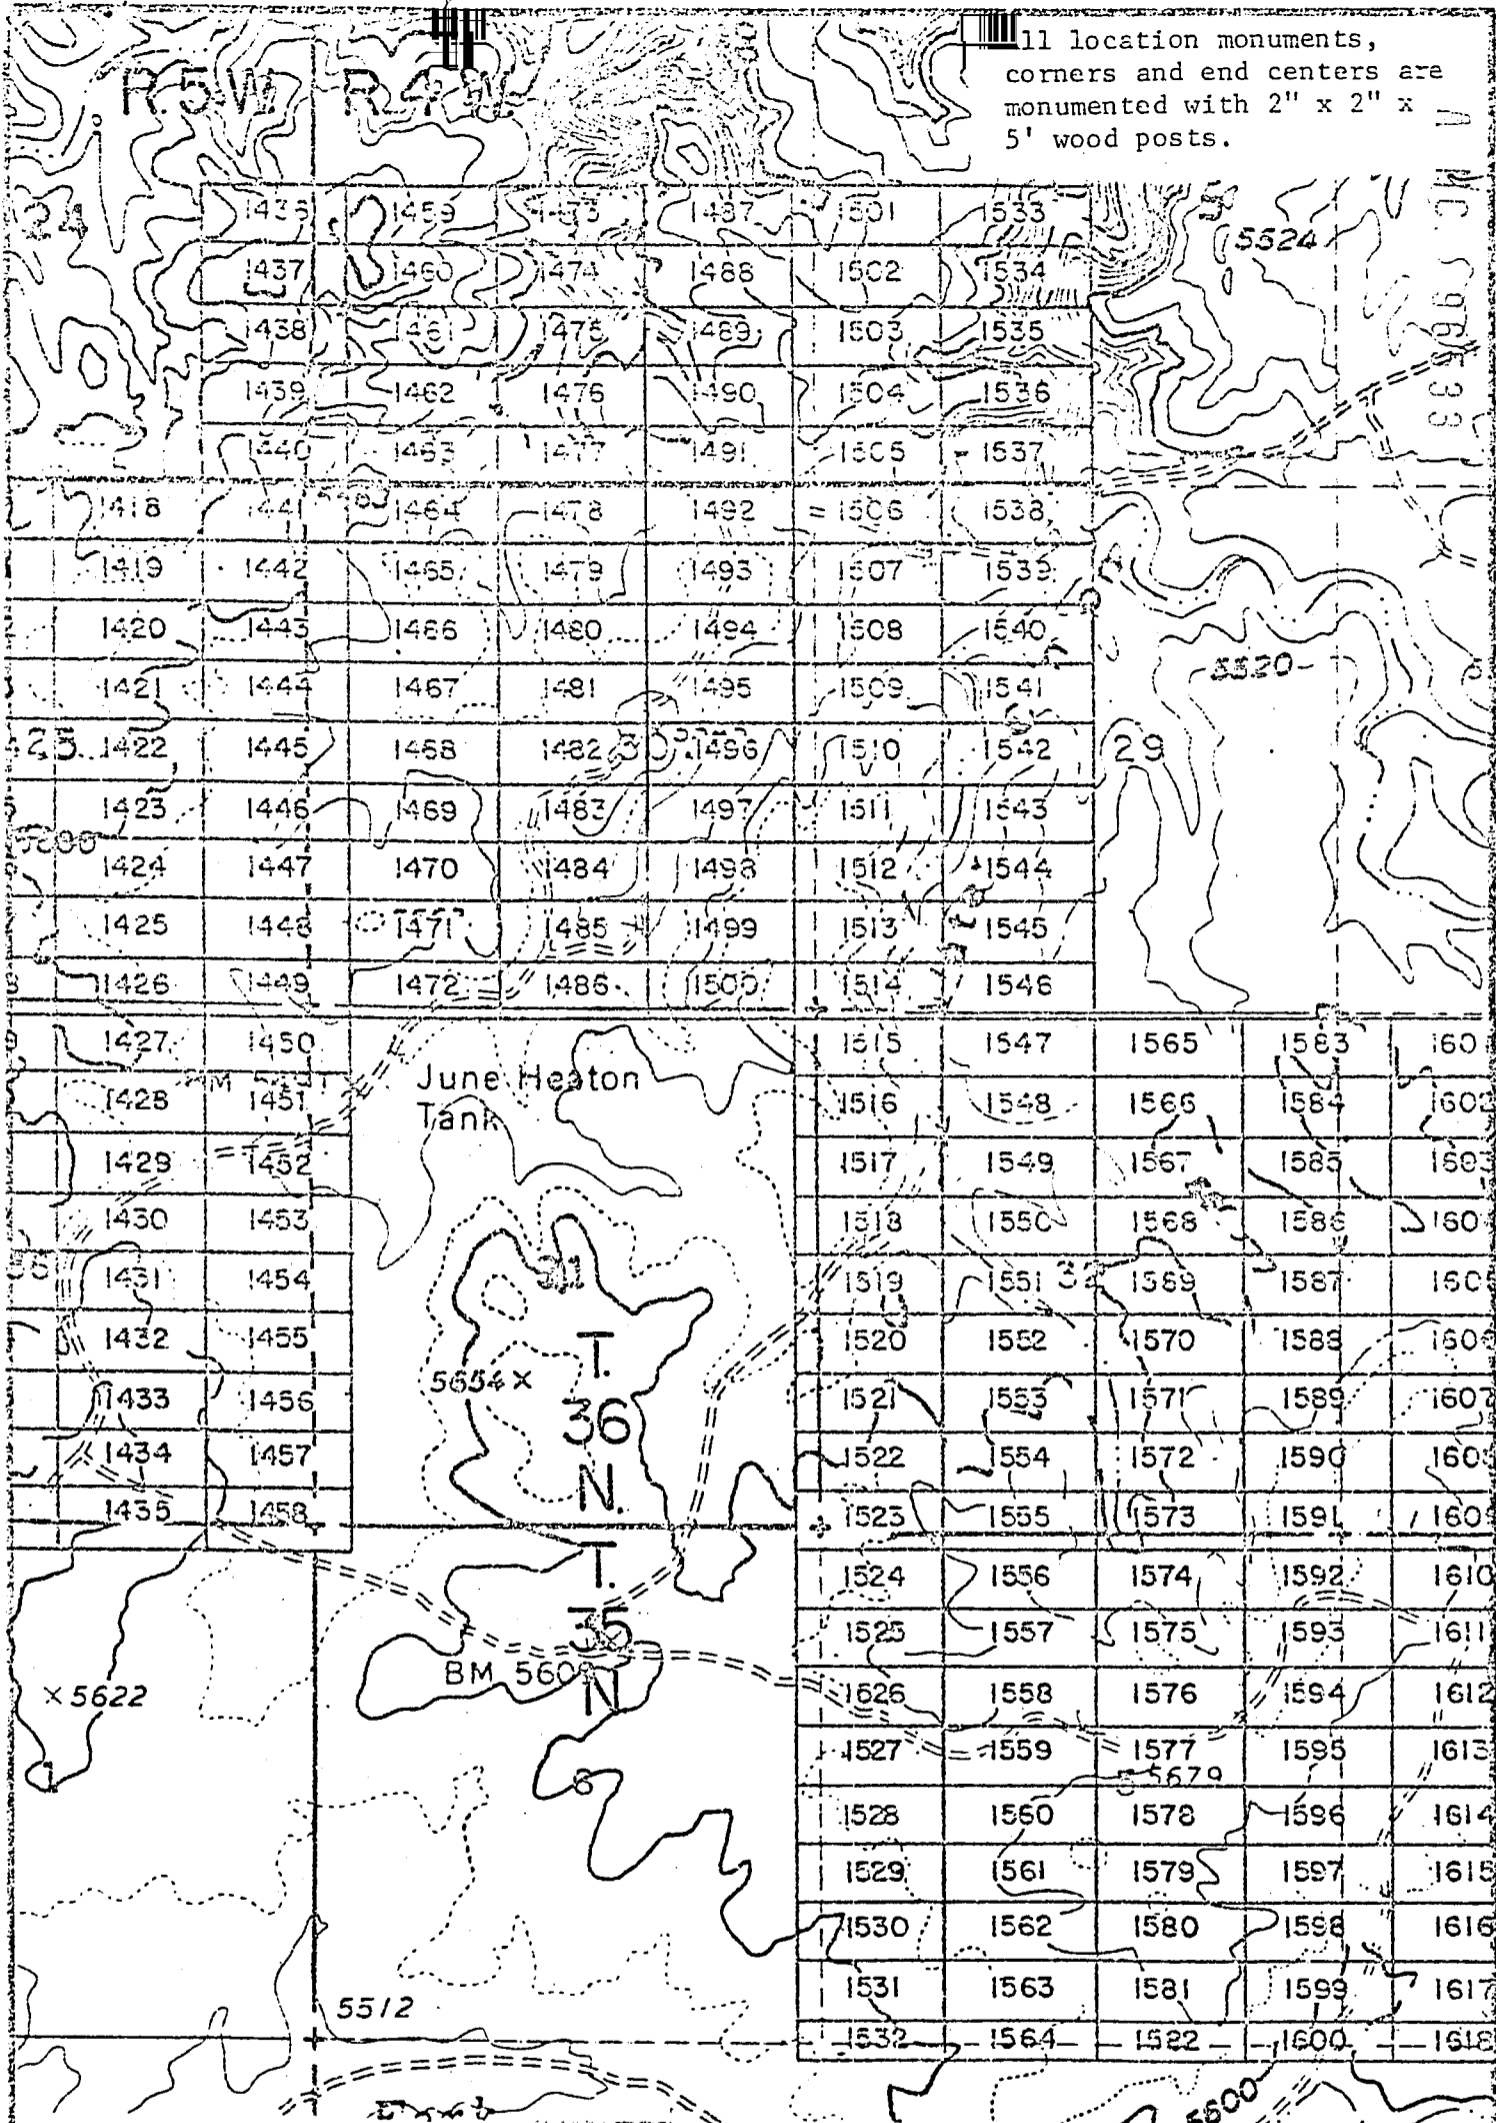 11 location monuments,
corners and end centers are
monumented with 2" x 2" x
5' wood posts.
R.5W R.4W
24 1436 1459 1487 1501 1533
5524
1437 1460 1474 1488 1502 1534
1438 1461 1475 1489 1503 1535
1439 1462 1476 1490 1504 1536
1440 1463 1477 1491 1505 1537
1418 1441 1464 1478 1492 1506 1538
1419 1442 1465 1479 1493 1507 1539
1420 1443 1466 1480 1494 1508 1540
5520
1421 1444 1467 1481 1495 1509 1541
25 1422 1445 1468 1482 30 1496 1510 1542 29
1423 1446 1469 1483 1497 1511 1543
1424 1447 1470 1484 1498 1512 1544
1425 1448 1471 1485 1499 1513 1545
1426 1449 1472 1486 1500 1514 1546
1427 1450 1515 1547 1565 1583 160
June Heaton
Tank
1428 1451 1516 1548 1566 1584 1602
1429 1452 1517 1549 1567 1585 1603
1430 1453 1518 1550 1568 1586 160
1431 1454 31 1519 1551 32 1569 1587 1605
1432 1455 1520 1552 1570 1588 1606
5654 x
T.
36
N.
1433 1456 1521 1553 1571 1589 1607
1434 1457 1522 1554 1572 1590 1608
1435 1458 1523 1555 1573 1591 1609
T.
35
N
1524 1556 1574 1592 1610
1525 1557 1575 1593 1611
BM 560
x 5622
1526 1558 1576 1594 1612
1527 1559 1577 1595 1613
1 6 5 5679
1528 1560 1578 1596 1614
1529 1561 1579 1597 1615
1530 1562 1580 1598 1616
1531 1563 1581 1599 1617
5512
1532 1564 1582 1600 1618
5600